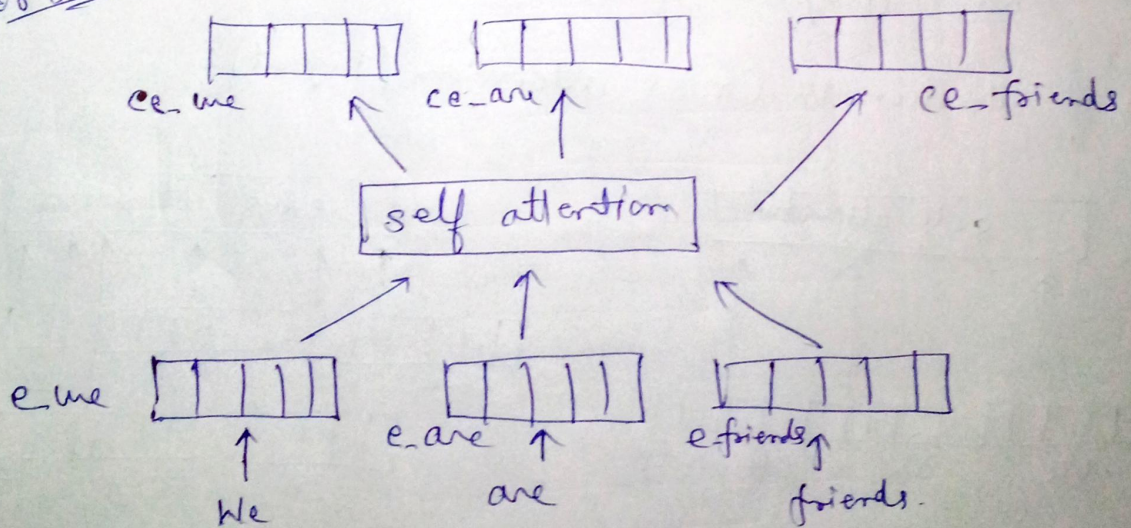 ce_we ce_are ce_friends
self attention
e_we
e_are e_friends
We are friends.